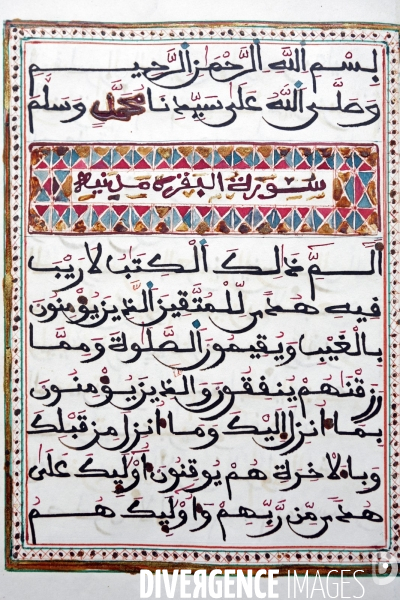 بِسْمِ اللَّهِ الرَّحْمَٰنِ الرَّحِيمِ
وَصَلَّى اللَّهُ عَلَى سَيِّدِنَا مُحَمَّدٍ وَسَلَّمَ
سورة البقرة مدنية
الٓمٓ ذَٰلِكَ الْكِتَٰبُ لَا رَيْبَ
فِيهِ هُدًى لِّلْمُتَّقِينَ الَّذِينَ يُومِنُونَ
بِالْغَيْبِ وَيُقِيمُونَ الصَّلَوٰةَ وَمِمَّا
رَزَقْنَٰهُمْ يُنفِقُونَ وَالَّذِينَ يُومِنُونَ
بِمَا أُنزِلَ إِلَيْكَ وَمَا أُنزِلَ مِن قَبْلِكَ
وَبِالَاخِرَةِ هُمْ يُوقِنُونَ أُوْلَٰئِكَ عَلَىٰ
هُدًى مِّن رَّبِّهِمْ وَأُوْلَٰئِكَ هُمُ
DIVERGENCE IMAGES